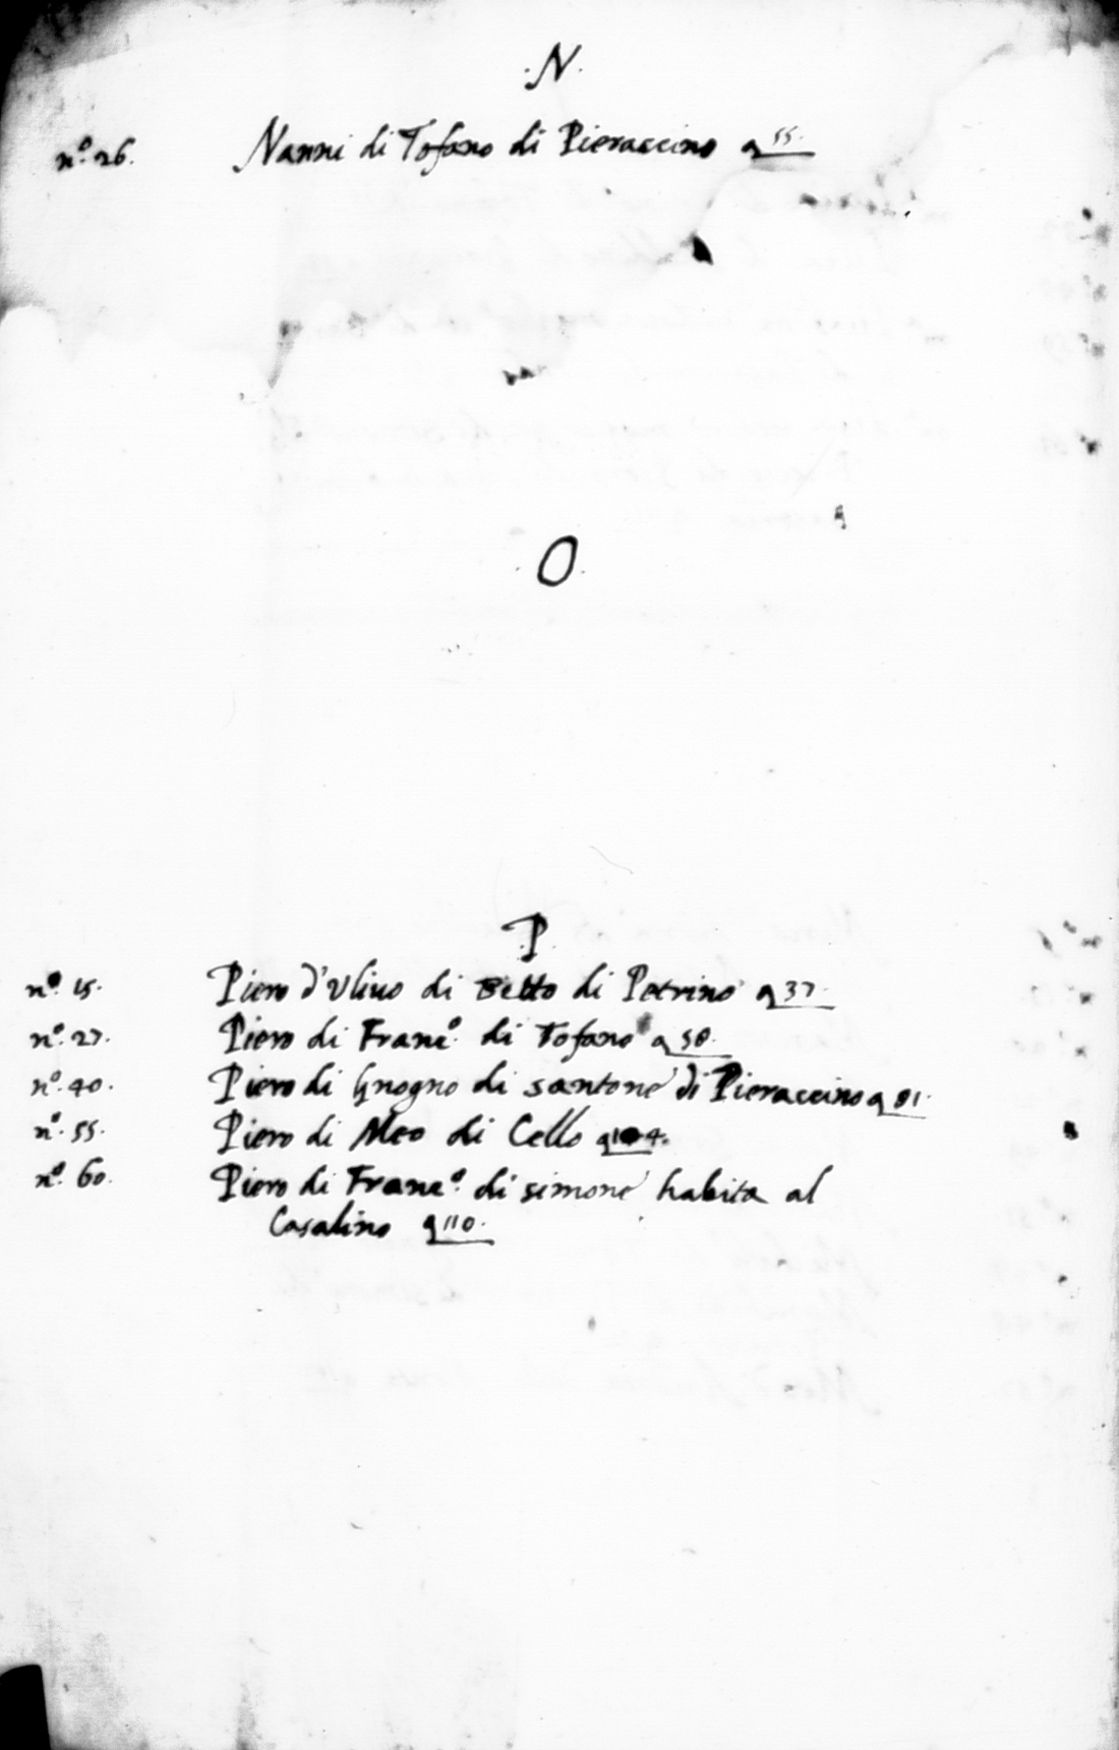 .N.
nº. 26. Nanni di Tofano di Pieraccino a 55.
.O.
.P.
nº. 15. Piero d'Ulivo di Betto di Petrino a 37.
nº. 27. Piero di Francº. di Tofano a 58.
nº. 40. Piero di Gnogno di santone di Pieraccino a 81.
nº. 55. Piero di Meo di Cello a 104.
nº. 60. Piero di Francº. di simone habita al
Casalino a 110.